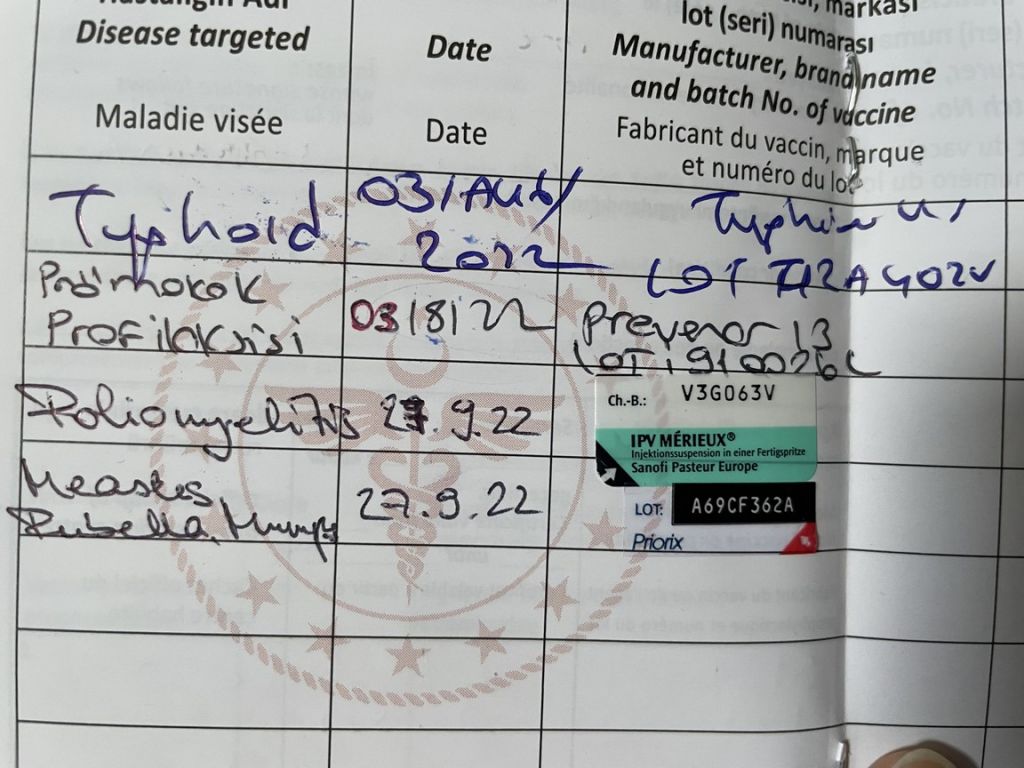 Disease targeted
Maladie visée
Date
Date
markası
lot (seri) numarası
Manufacturer, brand name
and batch No. of vaccine
Fabricant du vaccin, marque
et numéro du lot
Typhoid
03/AUG/
2022
LOT
Profilaksisi
03/8/22
Prevenar 13
LOT: 910026C
Poliomyelitis
27.9.22
Ch.-B.: V3G063V
IPV MÉRIEUX®
Injektionssuspension in einer Fertigspritze
Sanofi Pasteur Europe
Measles,
Rubella, Mumps
27.9.22
LOT: A69CF362A
Priorix